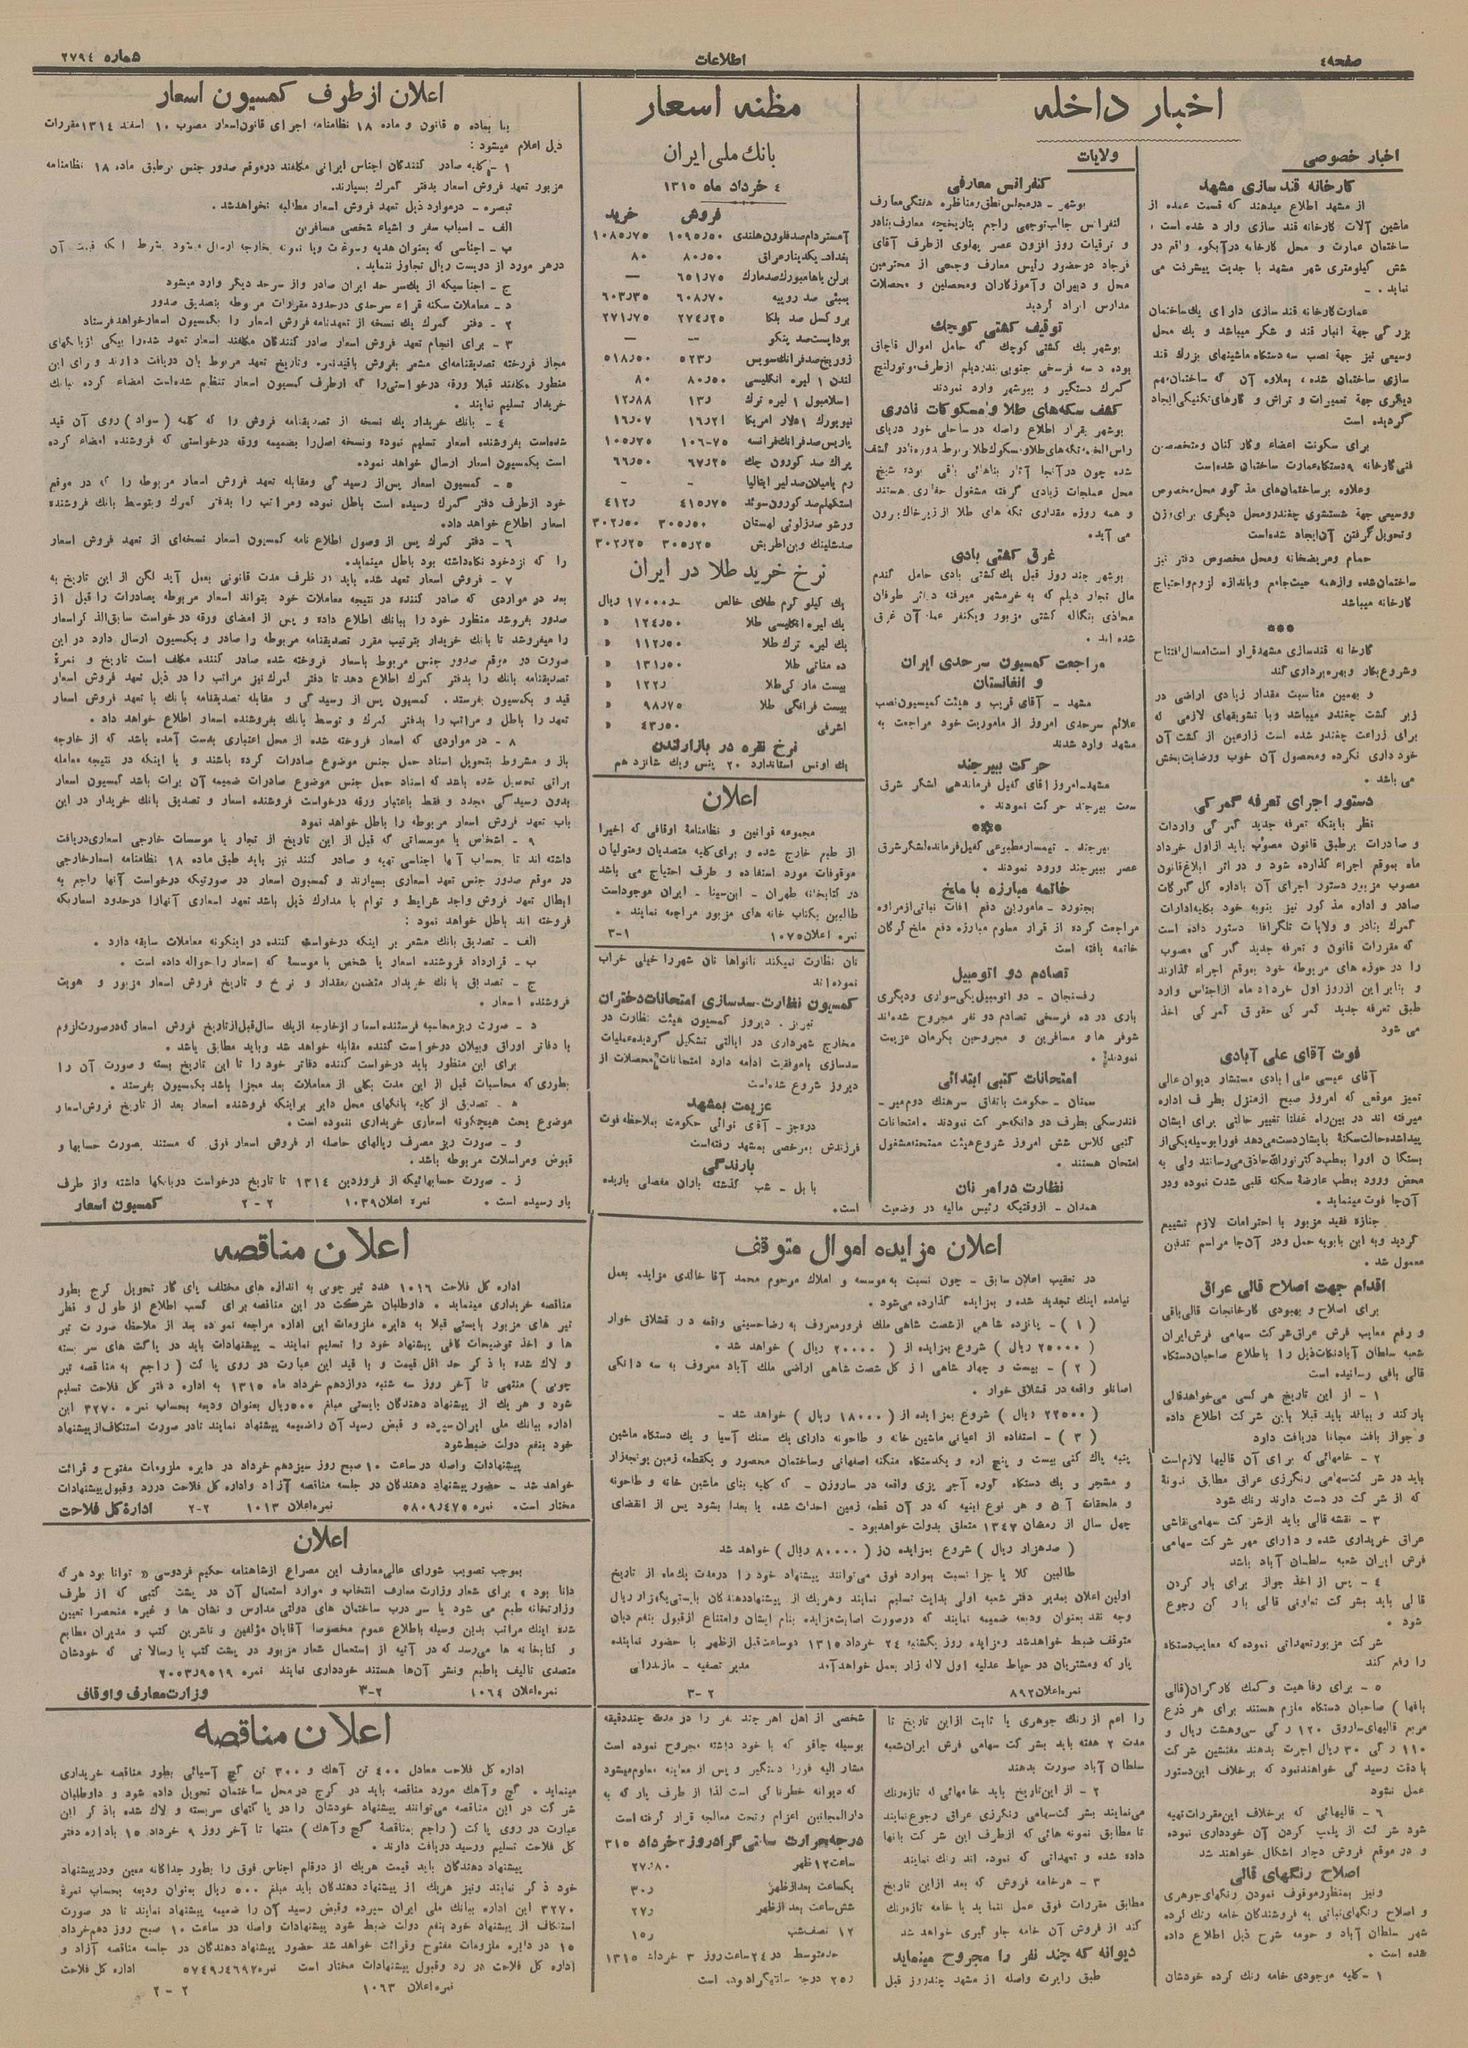 صفحه ٤
اطلاعات
شماره ٢٧٩٤
اخبار داخله
اخبار خصوصی
کارخانه قند سازی مشهد
از مشهد اطلاع میدهند که قسمت عمده از
ماشین آلات کارخانه قند سازی وارد شده است ،
ساختمان عمارت و محل کارخانه در آبکوه واقع در
شش کیلومتری شهر مشهد با جدیت پیشرفت می
نماید .
عمارت کارخانه قند سازی دارای یك ساختمان
بزرگی جهة انبار قند و شکر میباشد و یك محل
وسیعی نیز جهة نصب سه دستگاه ماشینهای بزرك قند
سازی ساختمان شده ، بعلاوه آن که ساختمان مهم
دیگری جهة تعمیرات و تراش و کارهای تکنیکی ایجاد
گردیده است
برای سکونت اعضاء و کارکنان و متخصصین
فنی کارخانه ٩ دستگاه عمارت ساختمان شده است
وعلاوه بر ساختمان‌های مذکور محل مخصوص
ووسیعی جهة شستشوی چغندر و محل دیگری برای وزن
وتحویل گرفتن آن ایجاد شده است
حمام ومریضخانه ومحل مخصوص دفتر نیز
ساختمان شده و از همه حیث جامع و باندازه لزوم و احتیاج
کارخانه میباشد
***
کارخانه قندسازی مشهد قرار است امسال افتتاح
وشروع بکار وبهره برداری کند
و بهمین مناسبت مقدار زیادی اراضی در
زیر کشت چغندر میباشد وبا تشویقهای لازمی که
برای زراعت چغندر شده است زارعین از کشت آن
خود داری نکرده ومحصول آن خوب ورضایت بخش
می باشد .
دستور اجرای تعرفه گمرکی
نظر باینکه تعرفه جدید گمرکی واردات
و صادرات برطبق قانون مصوب باید از اول خرداد
ماه بموقع اجراء گذارده شود و در اثر ابلاغ قانون
مصوب مزبور دستور اجرای آن باداره کل گمرکات
صادر و اداره مذکور نیز بنوبه خود بکلیه ادارات
گمرك بنادر و ولایات تلگرافا دستور داده است
که مقررات قانون و تعرفه جدید گمرکی مصوب
را در حوزه های مربوطه خود بموقع اجراء گذارند
و بنابر این از روز اول خرداد ماه از اجناس وارد
طبق تعرفه جدید گمرکی حقوق گمرکی اخذ
می شود
فوت آقای علی آبادی
آقای عیسی علی ابادی مستشار دیوان عالی
تمیز موقعی که امروز صبح از منزل بطرف اداره
میرفته اند در بین راه غفلتا تغییر حالتی برای ایشان
پیدا شده حالت سکتة بایشان دست می‌دهد فورا بوسیله یکی از
بستگان اورا بمطب دکتر نورالله حاذق می‌رسانند ولی به
محض ورود بمطب عارضة سکته قلبی شدت نموده ودر
آن‌جا فوت مینماید .
جنازه فقید مزبور با احترامات لازم تشییع
گردید وبه ابن بابویه حمل ودر آن‌جا مراسم تدفین
معمول شد .
اقدام جهت اصلاح قالی عراق
برای اصلاح و بهبودی کارخانجات قالی بافی
و رفع معایب فرش عراق شرکت سهامی فرش ایران
شعبه سلطان آباد نکات ذیل را باطلاع صاحبان دستگاه
قالی بافی رسانیده است
١ - از این تاریخ هر کسی می‌خواهد قالی
بارکند و ببافد باید قبلا باین شرکت اطلاع داده
و جواز بافت مجانا دریافت دارد
٢ - خامهائی که برای آن قالیها لازم است
باید در شرکت سهامی رنگرزی عراق مطابق نمونة
که از شرکت در دست دارند رنك شود
٣ - نقشه قالی باید از شرکت سهامی نقاشی
عراق خریداری شده و دارای مهر شرکت سهامی
فرش ایران شعبه سلطان آباد باشد
٤ - پس از اخذ جواز برای بار کردن
قالی باید بشرکت تعاونی قالی بارکن رجوع
شود .
شرکت مزبور تعهداتی نموده که معایب دستگاه
را رفع کند
٥ - برای رفاهیت و کمك کارگران (قالی
بافها ) صاحبان دستگاه ملزم هستند برای هر ذرع
مربع قالیهای ساروق ١٢٠ رگی سی‌وهشت ریال و
١١٠ رگی ٣٠ ریال اجرت بدهند مفتشین شرکت
با دقت رسیدگی خواهند نمود که برخلاف این دستور
عمل نشود
٦ - قالیهائی که برخلاف این مقررات تهیه
شود شرکت از پلمب کردن آن خودداری نموده
و در موقع فروش دچار اشکال خواهند شد
اصلاح رنگهای قالی
ونیز بمنظور موقوف نمودن رنگهای جوهری
و اصلاح رنگهای نباتی به فروشندگان خامه رنك کرده
شهر سلطان آباد و حومه شرح ذیل اطلاع داده
شده است .
١ - کلیه موجودی خامه رنك کرده خودشان
ولایات
کنفرانس معارفی
بوشهر - در مجلس نطق و مناظره هفتگی معارف
کنفراس جالب توجهی راجع بتاریخچه معارف بنادر
و ترقیات روز افزون عصر پهلوی از طرف آقای
فرجاد در حضور رئیس معارف وجمعی از محترمین
محل و دبیران وآموزکاران ومحصلین و محصلات
مدارس ایراد گردید
توقیف کشتی کوچك
بوشهر یك کشتی کوچك که حامل اموال قاچاق
بوده در سه فرسخی جنوبی بندر دیلم از طرف موتورلنچ
گمرك دستگیر و ببوشهر وارد نمودند
کشف سکه‌های طلا و مسکوکات نادری
بوشهر بقرار اطلاع واصله در ساحلی خور دریای
شده چون در آنجا آثار بناهائی باقی بوده شیخ
محل عملجات زیادی گرفته مشغول حفاری هستند
و همه روزه مقداری تکه های طلا از زیر خاک بیرون
می آید .
غرق کشتی بادی
بوشهر چند روز قبل یك کشتی بادی حامل گندم
مال تجار دیلم که به خرمشهر میرفته در اثر طوفان
محاذی بنگاله کشتی مزبور ویکنفر عمله آن غرق
شده اند .
مراجعت کمسیون سرحدی ایران
و افغانستان
مشهد - آقای قریب و هیئت کمیسیون نصب
علائم سرحدی امروز از ماموریت خود مراجعت به
مشهد وارد شدند
حرکت ببیرجند
مشهد - امروز آقای کفیل فرماندهی لشگر شرق
سمت بیرجند حرکت نمودند .
***
بیرجند - تیمسار مطبوعی کفیل فرمانده لشگر شرق
عصر ببیرجند ورود نمودند .
خاتمه مبارزه با ملخ
بجنورد - مامورین دفع افات نباتی از مراوه
مراجعت کرده از قرار معلوم مبارزه دفع ملخ گرگان
خاتمه یافته است
تصادم دو اتومبیل
رفسنجان - دو اتومبیل یکی سواری ودیگری
باری در ده فرسخی تصادم دو نفر مجروح شده‌اند
شوفرها و مسافرین و مجروحین بکرمان عزیمت
نمودند .
امتحانات کتبی ابتدائی
سمنان - حکومت باتفاق سرهنك دوم میر -
فندرسکی بطرف دو دانکه حرکت نمودند . امتحانات
کتبی کلاس شش امروز شروع هیئت ممتحنه مشغول
امتحان هستند .
نظارت در امر نان
همدان - از وقتیکه رئیس مالیه در وضعیت
مظنه اسعار
بانك ملی ایران
٤ خرداد ماه ١٣١٥
فروش خرید
آمستردام صد فلورن هلندی ١٠٩٥٫٥٠ ١٠٨٥٫٧٥
بغداد یکدینار عراق ٨٠٫٥٠ ٨٠
برلن یا هامبورك صد مارك ٦٥١٫٧٥ —
بمبئی صد روپیه ٦٠٨٫٧٠ ٦٠٣٫٣٥
بروکسل صد بلگا ٢٧٤٫٢٥ ٢٧١٫٧٥
بوداپست صد پنگو — —
زوریخ صد فرانك سویس ٥٢٣٫ ٥١٨٫٥٠
لندن ١ لیره انگلیسی ٨٠٫٥٠ ٨٠
اسلامبول ١ لیره ترك ١٣٫ ١٢٫٨٨
نیویورك ١ دلار امریکا ١٦٫٢١ ١٦٫٠٧
پاریس صد فرانك فرانسه ١٠٦-٧٥ ١٠٥٫٧٥
پراك صد کورون چك ٦٧٫٢٥ ٦٦٫٥٠
رم یا میلان صد لیر ایتالیا - -
استکهلم صد کورون سوئد ٤١٥٫٧٥ ٤١٢٫
ورشو صد زلوتی لهستان ٣٠٥٫٥٠ ٣٠٢٫٥٠
صد شلینك وین اطریش ٣٠٥٫٢٥ ٣٠٢٫٢٥
نرخ خرید طلا در ایران
یك کیلو گرم طلای خالص ١٧٠٠٠٫ ریال
یك لیره انگلیسی طلا ١٢٤٫٥٠ «
یك لیره ترك طلا ١١٢٫٥٠ «
ده مناتی طلا ١٣١٫٥٠ «
بیست مارکی طلا ١٢٢٫ «
بیست فرانگی طلا ٩٨٫٧٥ «
اشرفی ٤٣٫٥٠ «
نرخ نقره در بازار لندن
یك اونس استاندارد ٢٠ پنس ویك شانزدهم
اعلان
مجموعه قوانین و نظامنامة اوقافی که اخیرا
از طبع خارج شده و برای کلیه متصدیان و متولیان
موقوفات مورد استفاده و طرف احتیاج می باشد
در کتابخانه طهران - ابن‌سینا - ایران موجود است
طالبین بکتاب خانه های مزبور مراجعه نمایند .
نمره اعلان ١٠٧٥ ١-٣
نان نظارت نمیکند نانواها نان شهر را خیلی خراب
نموده‌اند
کمسیون نظارت - سدسازی امتحانات دختران
تبریز . دیروز کمسیون هیئت نظارت در
مخارج شهرداری در ایالتی تشکیل گردیده عملیات
سدسازی باموفقیت ادامه دارد امتحانات محصلات از
دیروز شروع شده است
عزیمت بمشهد
دره‌جز - آقای نوائی حکومت بملاحظه فوت
فرزندش بمرخصی بمشهد رفته است
بارندگی
بابل - شب گذشته باران مفصلی باریده
است .
اعلان مزایده اموال متوقف
در تعقیب اعلان سابق - چون نسبت به موسسه و املاك مرحوم محمد آقا خالدی مزایده بعمل
نیامده اینك تجدید شده و بمزایده گذارده می‌شود .
( ١ ) - پانزده شاهی از شصت شاهی ملك فرور معروف به رضا حسینی واقعه در قشلاق خوار
( ٢٥٠٠٠ ریال ) شروع بمزایده از ( ٢٠٠٠٠ ریال ) خواهد شد .
( ٢ ) - بیست و چهار شاهی از کل شصت شاهی اراضی ملك آباد معروف به سه دانگی
اصانلو واقعه در قشلاق خوار .
( ٢٢٥٠٠ ریال ) شروع بمزایده از ( ١٨٠٠٠ ریال ) خواهد شد -
( ٣ ) - استفاده از اعیانی ماشین خانه و طاحونه دارای یك سنك آسیا و یك دستگاه ماشین
پنبه پاك کنی بیست و پنج اره و یکدستگاه منگنه اصفهانی وساختمان محصور و یکقطعه زمین یونجه‌زار
و مشجر و یك دستگاه کوره آجر پزی واقعه در ساروزن - که کلیه بنای ماشین خانه و طاحونه
و ملحقات آن و هر نوع ابنیه که در آن قطعه زمین احداث شده یا بعدا بشود پس از انقضای
چهل سال از رمضان ١٣٤٧ متعلق بدولت خواهد بود -
( صدهزار ریال ) شروع بمزایده از ( ٨٠٠٠٠ ریال ) خواهد شد
طالبین کلا یا جزا نسبت بموارد فوق می‌توانند پیشنهاد خود را در مدت یك ماه از تاریخ
اولین اعلان بمدیر دفتر شعبه اولی بدایت تسلیم نمایند وهریك از پیشنهاد دهندگان بایستی یکهزار ریال
وجه نقد بعنوان ودیعه ضمیمه نمایند که درصورت اصابت مزایده بنام ایشان وامتناع از قبول بنفع دیان
متوقف ضبط خواهد شد ومزایده روز یکشنبه ٢٤ خرداد ١٣١٥ دو ساعت قبل از ظهر با حضور نماینده
پارکه ومشتریان در حیاط عدلیه اول لاله زار بعمل خواهد آمد مدیر تصفیه - مازندرانی
نمره اعلان ٨٩٢ ٢-٣
را اعم از رنك جوهری یا ثابت از این تاریخ تا
مدت ٢ هفته باید بشرکت سهامی فرش ایران شعبه
سلطان آباد صورت بدهند
٢ - از این تاریخ باید خامهائی که تازه رنك
می‌نمایند بشرکت سهامی رنگرزی عراق رجوع نمایند
تا مطابق نمونه هائی که از طرف این شرکت بانها
داده شده و تعهداتی که نموده اند رنك نمایند
٣ - هر خامه فروش که بعد از این تاریخ
مطابق مقررات فوق عمل ننماید یا خامه تازه رنك
کند از فروش آن خامه جلوگیری خواهد شد
دیوانه که چند نفر را مجروح مینماید
طبق راپرت واصله از مشهد چند روز قبل
شخصی از اهل اهر چند نفر را در مدت چند دقیقه
بوسیله چاقی که با خود داشته مجروح نموده است
مشار الیه فورا دستگیر و پس از معاینه معلوم میشود
که دیوانه خطرناکی است لذا از طرف پارکه به
دارالمجانین اعزام وتحت معالجه قرار گرفته است
درجه حرارت سانتی گراد روز ٣ خرداد ٣١٥
ساعت ١٢ ظهر ٢٧٫٨٠
یکساعت بعد از ظهر ٣٠٫
شش ساعت بعد از ظهر ٢٧٫
١٢ نصف شب ١٥٫
حد متوسط در ٢٤ ساعت روز ٣ خرداد ١٣١٥
٢٥٫ درجه سانتیگراد بوده است
اعلان از طرف کمسیون اسعار
بنا بماده ٥ قانون و ماده ١٨ نظامنامه اجرای قانون اسعار مصوب ١٠ اسفند ١٣١٤ مقررات
ذیل اعلام میشود :
١ - کلیه صادر کنندگان اجناس ایرانی مکلفند در موقع صدور جنس برطبق ماده ١٨ نظامنامه
مزبور تعهد فروش اسعار بدفتر گمرك بسپارند.
تبصره - در موارد ذیل تعهد فروش اسعار مطالبه نخواهد شد.
الف - اسباب سفر و اشیاء شخصی مسافرین
ب - اجناسی که بعنوان هدیه وسوغات ویا نمونه بخارجه ارسال میشود بشرط اینکه قیمت آن
در هر مورد از دویست ریال تجاوز ننماید .
ج - اجناسیکه از یك سرحد ایران صادر واز سرحد دیگر وارد میشود
د - معاملات سکنه قراء سرحدی در حدود مقررات مربوطه بتصدیق صدور
٢ - دفتر گمرك یك نسخه از تعهدنامه فروش اسعار را بکمسیون اسعار خواهد فرستاد
٣ - برای انجام تعهد فروش اسعار صادر کنندگان مکلفند اسعار تعهد شده را بیکی از بانکهای
مجاز فروخته تصدیقنامه‌ای مشعر بفروش باقید نمره وتاریخ تعهد مربوط بان دریافت دارند و برای این
منظور مکلفند قبلا ورقه درخواستی را که از طرف کمسیون اسعار تنظیم شده است امضاء کرده ببانك
خریدار تسلیم نمایند .
٤ - بانك خریدار یك نسخه از تصدیقنامه فروش را که کلمه (سواد) روی آن قید
شده است بفروشنده اسعار تسلیم نموده ونسخه اصل را بضمیمه ورقه درخواستی که فروشنده امضاء کرده
است بکمسیون اسعار ارسال خواهد نمود.
٥ - کمسیون اسعار پس از رسیدگی ومقابله تعهد فروش اسعار مربوطه را که در موقع
خود از طرف دفتر گمرك رسیده است باطل نموده ومراتب را بدفتر گمرك وبتوسط بانك فروشنده
اسعار اطلاع خواهد داد.
٦ - دفتر گمرك پس از وصول اطلاع نامه کمسیون اسعار نسخه‌ای از تعهد فروش اسعار
را که نزد خود نگاهداشته بود باطل مینماید.
٧ - فروش اسعار تعهد شده باید در ظرف مدت قانونی بعمل آید لکن از این تاریخ به
بعد در مواردی که صادر کننده در نتیجه معاملات خود بتواند اسعار مربوطه بصادرات را قبل از
صدور بفروشد منظور خود را ببانك اطلاع داده و پس از امضای ورقه درخواست سابق‌الذکر اسعار
را میفروشد تا بانك خریدار بترتیب مقرر تصدیقنامه مربوطه را صادر و بکمسیون ارسال دارد در این
صورت در موقع صدور جنس مربوط باسعار فروخته شده صادر کننده مکلف است تاریخ و نمرة
تصدیقنامه بانك را بدفتر گمرك اطلاع دهد تا دفتر گمرك نیز مراتب را در ذیل تعهد فروش اسعار
قید و بکمسیون بفرستد . کمسیون پس از رسیدگی و مقابله تصدیقنامه بانك با تعهد فروش اسعار
تعهد را باطل و مراتب را بدفتر گمرك و توسط بانك بفروشنده اسعار اطلاع خواهد داد .
٨ - در مواردی که اسعار فروخته شده از محل اعتباری بدست آمده باشد که از خارجه
باز و مشروط بتحویل اسناد حمل جنس موضوع صادرات کرده باشند و یا اینکه در نتیجه معامله
براتی تحصیل شده باشد که اسناد حمل جنس موضوع صادرات ضمیمه آن برات باشد کمسیون اسعار
بدون رسیدگی مجدد و فقط باعتبار ورقه درخواست فروشنده اسعار و تصدیق بانك خریدار در این
باب تعهد فروش اسعار مربوطه را باطل خواهد نمود
٩ - اشخاص یا موسساتی که قبل از این تاریخ از تجار یا موسسات خارجی اسعاری دریافت
داشته اند تا بحساب آنها اجناسی تهیه و صادر کنند نیز باید طبق ماده ١٨ نظامنامه اسعار خارجی
در موقع صدور جنس تعهد اسعاری بسپارند و کمسیون اسعار در صورتیکه درخواست آنها راجع به
ابطال تعهد فروش واجد شرایط و توام با مدارك ذیل باشد تعهد اسعاری آنهارا در حدود اسعاریکه
فروخته اند باطل خواهد نمود :
الف - تصدیق بانك مشعر بر اینکه درخواست کننده در اینگونه معاملات سابقه دارد .
ب - قرارداد فروشنده اسعار با شخص یا موسسة که اسعار را حواله داده است .
ج - تصدیق بانك خریدار متضمن مقدار و نرخ و تاریخ فروش اسعار مزبور و هویت
فروشنده اسعار .
د - صورت ریز محاسبه فرستنده اسعار از خارجه از یك سال قبل از تاریخ فروش اسعار که در صورت لزوم
با دفاتر اوراق و بیلان درخواست کننده مقابله خواهد شد وباید مطابق باشد .
برای این منظور باید درخواست کننده دفاتر خود را تا این تاریخ بسته و صورت آن را
بطوری که محاسبات قبل از این مدت بکلی از معاملات بعد مجزا باشد بکمسیون بفرستد .
ه - تصدیق از کلیه بانکهای محل دایر براینکه فروشنده اسعار بعد از تاریخ فروش اسعار
موضوع بحث هیچگونه اسعاری خریداری ننموده است .
و - صورت ریز مصرف ریالهای حاصله از فروش اسعار فوق که مستند بصورت حسابها و
قبوض ومراسلات مربوطه باشد .
ز - صورت حسابهائیکه از فروردین ١٣١٤ تا تاریخ درخواست در بانکها داشته واز طرف
باو رسیده است . نمره اعلان ١٠٣٩ ٢-٢ کمسیون اسعار
اعلان مناقصه
اداره کل فلاحت ١٠١٦ عدد تیر چوبی به اندازه های مختلف پای کار تحویل کرج بطور
مناقصه خریداری مینماید . داوطلبان شرکت در این مناقصه برای کسب اطلاع از طول و قطر
تیر های مزبور بایستی قبلا به دایره ملزومات این اداره مراجعه نموده بعد از ملاحظه صورت تیر
ها و اخذ توضیحات کافی پیشنهاد خود را تسلیم نمایند - پیشنهادات باید در پاکت های سر بسته
و لاك شده با ذکر حد اقل قیمت و با قید این عبارت در روی پاکت ( راجع به مناقصه تیر
چوبی ) منتهی تا آخر روز سه شنبه دوازدهم خرداد ماه ١٣١٥ به اداره دفتر کل فلاحت تسلیم
شود و هریك از پیشنهاد دهندگان بایستی مبلغ ٥٠٠ ریال بعنوان ودیعه بحساب نمره ٣٢٧٠ این
اداره ببانك ملی ایران سپرده و قبض رسید آن راضمیمه پیشنهاد نمایند تا در صورت استنکاف از پیشنهاد
خود بنفع دولت ضبط شود
پیشنهادات واصله در ساعت ١٠ صبح روز سیزدهم خرداد در دایره ملزومات مفتوح و قرائت
خواهد شد - حضور پیشنهاد دهندگان در جلسه مناقصه آزاد واداره کل فلاحت در رد وقبول پیشنهادات
مختار است . نمره ٥٨٠٩٫٤٧٥ نمره اعلان ١٠١٣ ٢-٢ اداره کل فلاحت
اعلان
بموجب تصویب شورای عالی معارف این مصراع از شاهنامه حکیم فردوسی « توانا بود هر که
دانا بود » برای شعار وزارت معارف انتخاب و موارد استعمال آن در پشت کتبی که از طرف
وزارتخانه طبع می شود یا سر درب ساختمان های دولتی مدارس و نشان ها و غیره منحصرا تعیین
شده اینك مراتب بدین وسیله باطلاع عموم مخصوصا آقایان مؤلفین و ناشرین کتب و مدیران مطابع
و کتابخانه ها می‌رسد که در آتیه از استعمال شعار مزبور در پشت کتب یا رسالاتی که خودشان
متصدی تالیف یاطبع ونشر آن‌ها هستند خودداری نمایند نمره ٢٠٠٥٣٫٩٥١٩
نمره اعلان ١٠٦٤ ٢-٣ وزارت معارف و اوقاف
اعلان مناقصه
اداره کل فلاحت معادل ٤٠٠ تن آهك و ٣٠٠ تن گچ آسیائی بطور مناقصه خریداری
مینماید . گچ وآهك مورد مناقصه باید در کرج در محل ساختمان تحویل داده شود و داوطلبان
شرکت در این مناقصه می‌توانند پیشنهاد خودشان را در پاکتهای سربسته و لاك شده باذکر این
عبارت در روی پاکت ( راجع بمناقصة گچ وآهك ) منتها تا آخر روز ٩ خرداد ١٥ باداره دفتر
کل فلاحت تسلیم ورسید دریافت دارند .
پیشنهاد دهندگان باید قیمت هریك از دو قلم اجناس فوق را بطور جداگانه معین ودر پیشنهاد
خود ذکر نمایند ونیز هریك از پیشنهاد دهندگان باید مبلغ ٥٠٠ ریال بعنوان ودیعه بحساب نمرة
٣٢٧٠ این اداره ببانك ملی ایران سپرده وقبض رسید آن را ضمیمه پیشنهاد نمایند تا در صورت
استنکاف از پیشنهاد خود بنفع دولت ضبط شود پیشنهادات واصله در ساعت ١٠ صبح روز دهم خرداد
١٥ در دایره ملزومات مفتوح وقرائت خواهد شد حضور پیشنهاد دهندگان در جلسه مناقصه آزاد و
اداره کل فلاحت در رد وقبول پیشنهادات مختار است نمره ٥٧٤٩٫٤٦٩٢ اداره کل فلاحت
نمره اعلان ١٠٦٣ ٢-٢